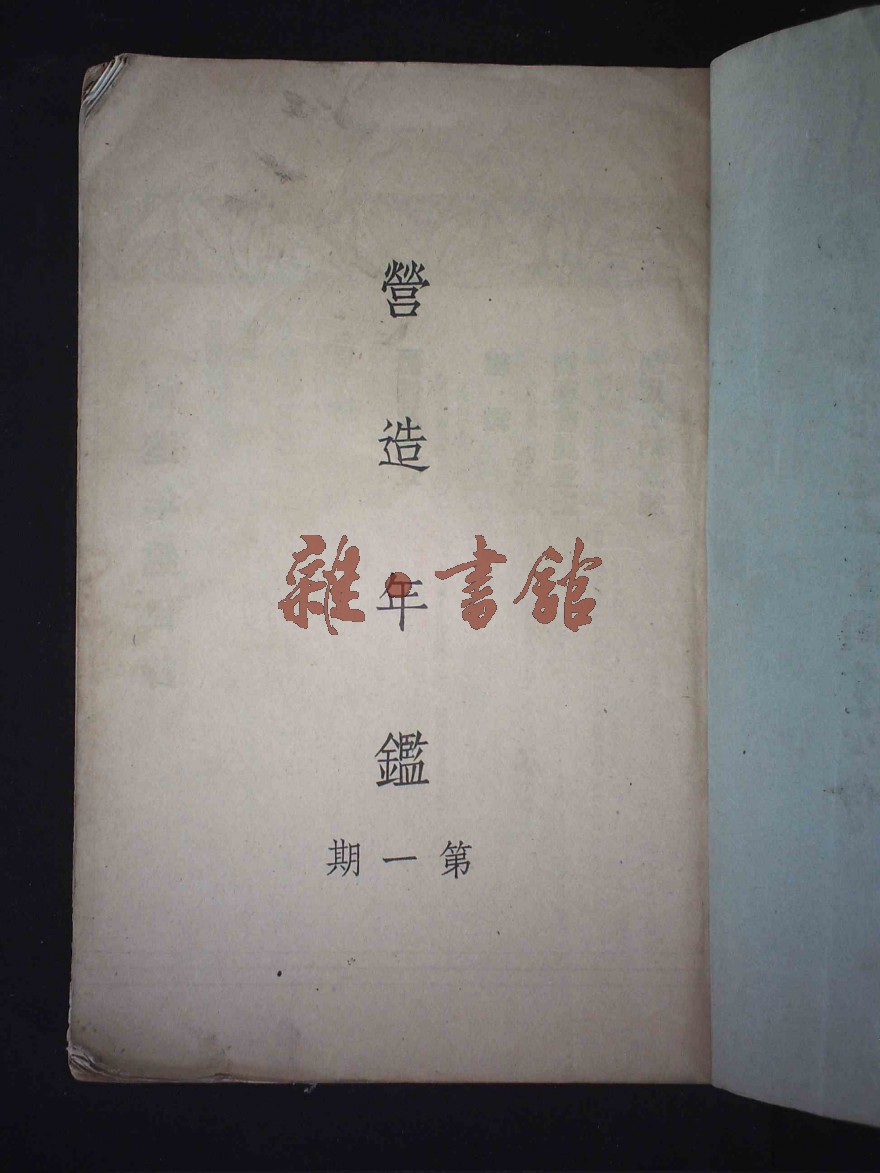 營造年鑑
第一期
雜書館